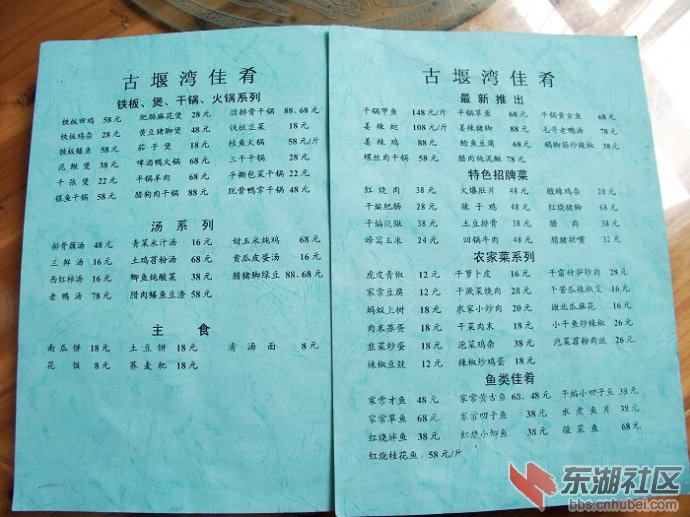 古堰湾佳肴
铁板、煲、干锅、火锅系列
铁板田鸡 58元 肥肠麻花煲 28元 腊排骨干锅 88、68元
铁板鸡杂 28元 黄豆猪脚煲 48元 铁板韭菜 18元
铁板鳝鱼 58元 茄子煲 18元 桂鱼火锅 58元/斤
泥鳅煲 38元 啤酒鸭火锅 68元 三千干锅 28元
千张煲 22元 干锅羊肉 68元 手撕包菜干锅 22元
银鱼干锅 58元 腊狗肉干锅 88元 脱骨鸭掌干锅 48元
汤系列
排骨藕汤 48元 青菜米汁汤 16元 甜玉米炖鸡 68元
三鲜汤 16元 土鸡苕粉汤 68元 黄瓜皮蛋汤 16元
西红柿汤 16元 鲫鱼炖酸菜 38元 腊猪脚绿豆 88、68元
老鸭汤 78元 腊肉鳝鱼豆渣 58元
主食
南瓜饼 18元 土豆饼 18元 清汤面 8元
花饭 8元 荞麦粑 18元
古堰湾佳肴
最新推出
干锅甲鱼 148元/斤 干锅草鱼 68元 干锅黄古鱼 68元
姜辣蛇 108元/斤 姜辣猪脚 88元 毛哥老鸭汤 78元
姜辣鸡 88元 鲶鱼豆腐 68元 鹅脚筋炒辣椒 38元
螺丝肉干锅 58元 腊肉炖泥鳅 78元
特色招牌菜
红烧肉 38元 火爆肚片 48元 酸辣鸡杂 28元
干煸肥肠 28元 辣子鸡 48元 红烧猪脚 68元
干煸泥鳅 38元 土豆排骨 38元 腊肉 38元
蜂窝玉米 24元 回锅牛肉 48元 腊猪拱嘴 32元
农家菜系列
虎皮青椒 12元 干萝卜皮 16元 干雷竹笋炒肉 28元
家常豆腐 12元 干蕨菜烧肉 28元 干苦瓜辣椒皮 16元
蚂蚁上树 18元 农家小炒肉 20元 傲北瓜麻花 16元
肉末蒸蛋 18元 干菜肉末 18元 小干鱼炒辣椒 26元
韭菜炒蛋 18元 泡菜鸡杂 28元 泡菜苕粉肉丝 26元
辣椒豆豉 12元 辣椒炒鸡蛋 18元
鱼类佳肴
家常才鱼 48元 家常黄古鱼 68、48元 干煸小叼子鱼 38元
家常草鱼 68元 家常叨子鱼 38元 水煮鱼片 38元
红烧鲊鱼 38元 红烧小鲫鱼 38元 酸菜鱼 68元
红烧桂花鱼 58元/斤
东湖社区
bbs.cnhubei.com